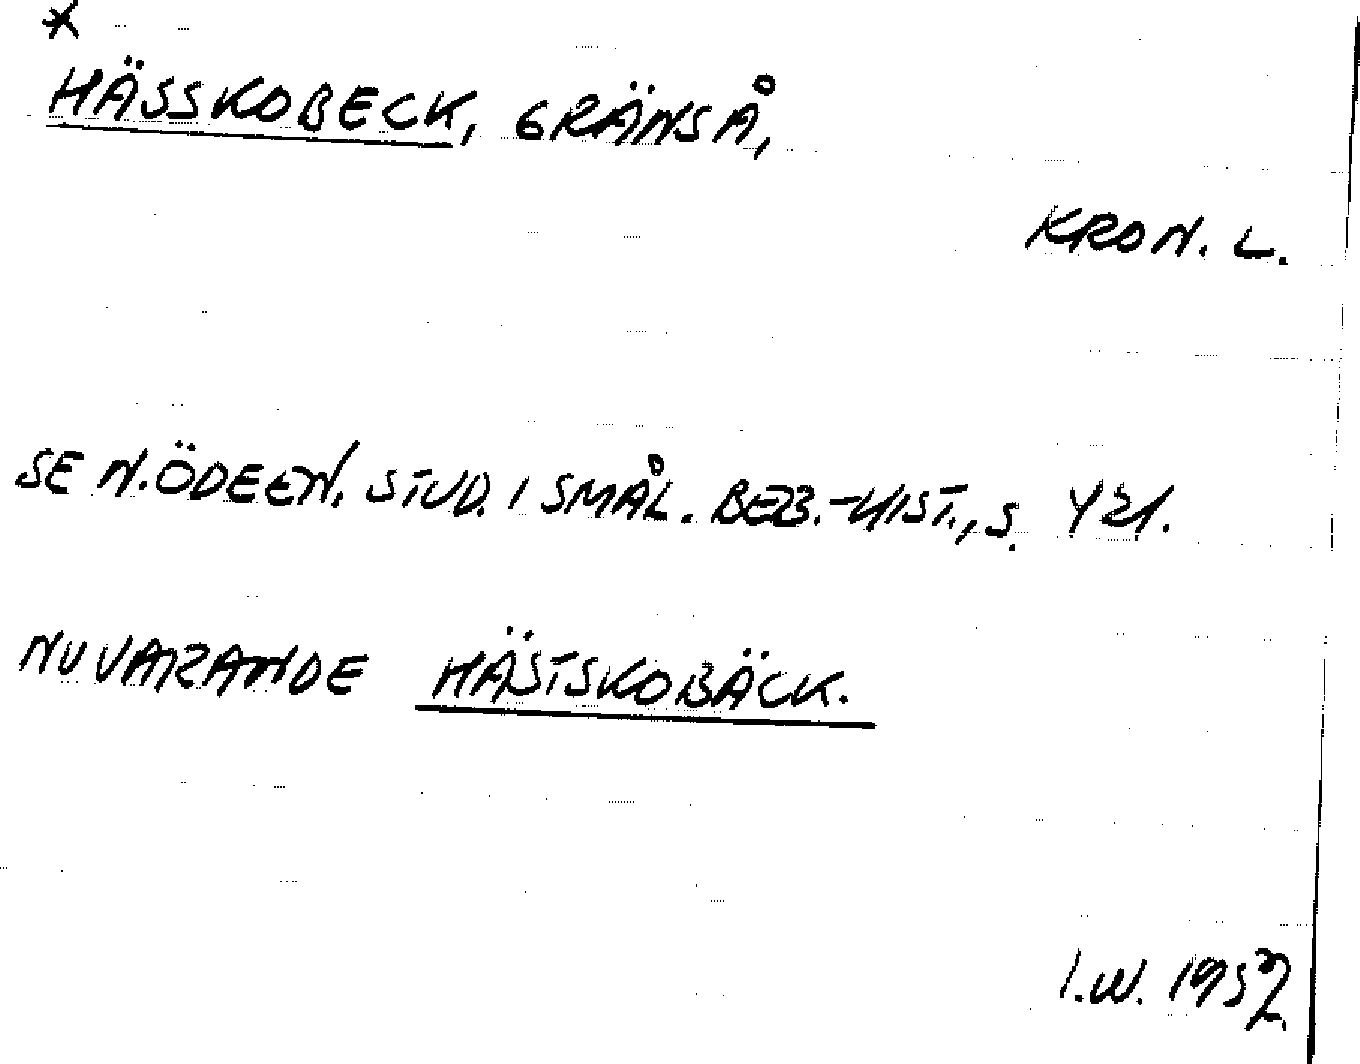 *
HÄSSKOBECK, GRÄNSÅ,
KRON. L.
SE N. ÖDEEN. STUD. I SMÅL. BEB.-HIST., S. 421.
NUVARANDE HÄSTSKOBÄCK.
I.W. 1957